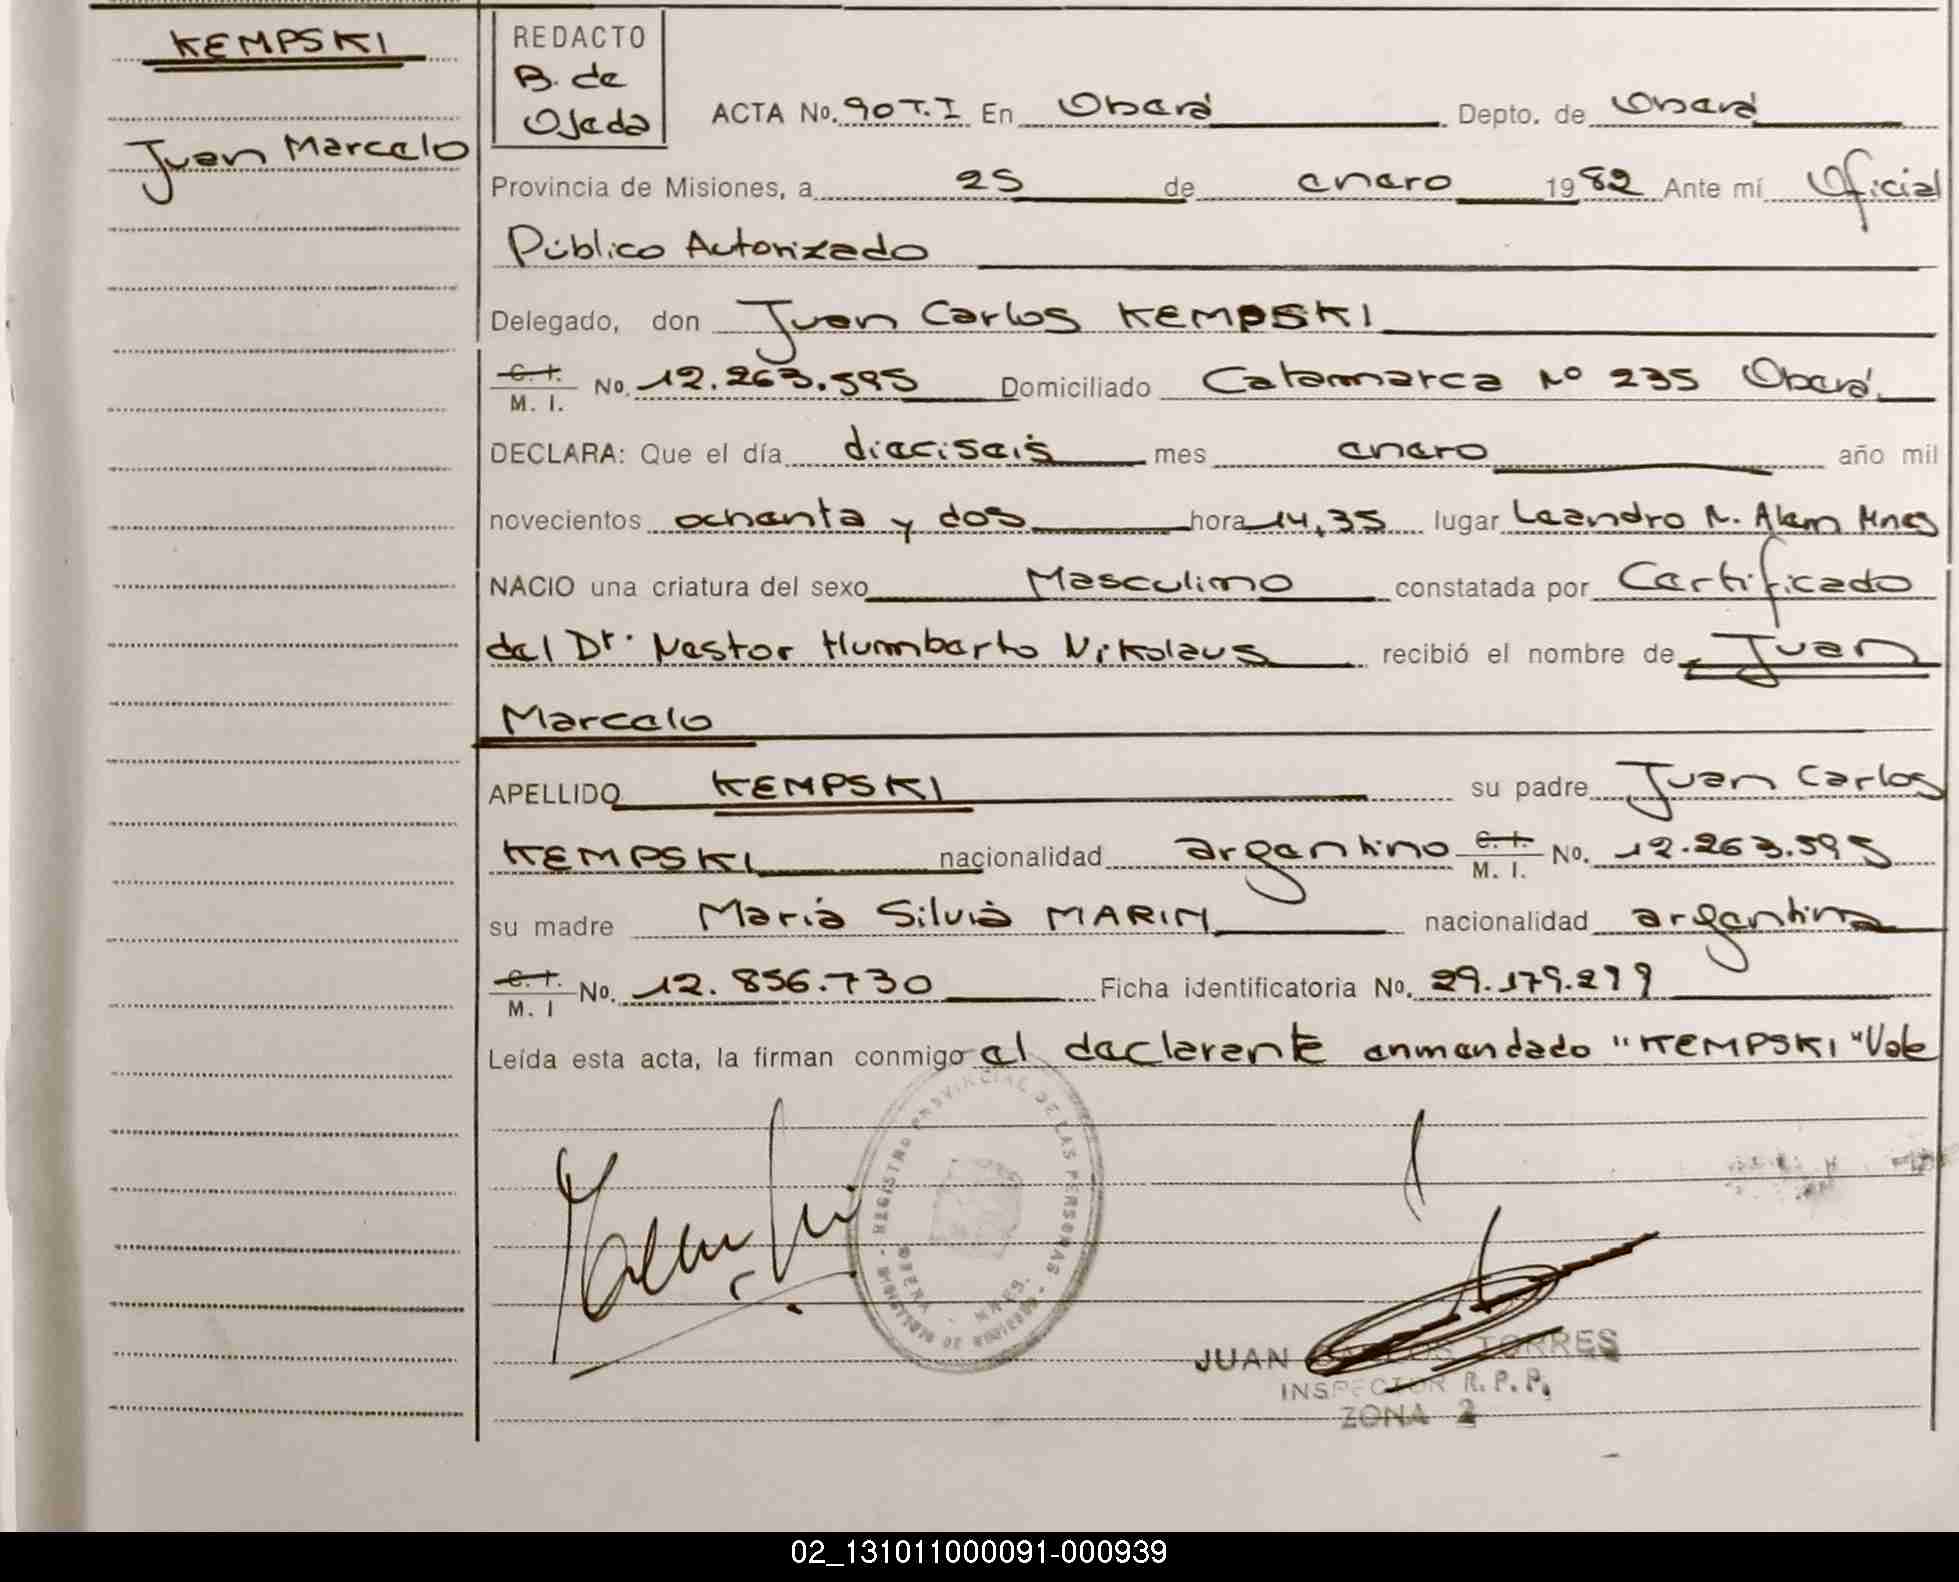 KEMPSKI
Juan Marcelo
REDACTO
B. de
Ojeda
ACTA No. 90 T.I En Oberá Depto. de Oberá
Provincia de Misiones, a 25 de enero 1982 Ante mí Oficial
Público Autorizado
Delegado, don Juan Carlos KEMPSKI
C. I. M. I. No. 12.263.595 Domiciliado Catamarca Nº 235 Oberá.
DECLARA: Que el día dieciseis mes enero año mil
novecientos ochenta y dos hora 14,35 lugar Leandro N. Alem Mnes
NACIO una criatura del sexo Masculino constatada por Certificado
del Dr. Nestor Humberto Nikolaus recibió el nombre de Juan
Marcelo
APELLIDO KEMPSKI su padre Juan Carlos
KEMPSKI nacionalidad argentino C. I. M. I. No. 12.263.595
su madre María Silvia MARIN nacionalidad argentina
C. I. M. I No. 12.856.730 Ficha identificatoria No. 29.179.299
Leída esta acta, la firman conmigo el declarante enmendado "KEMPSKI" Vale
REGISTRO PROVINCIAL DE LAS PERSONAS
OBERA - MNES.
JUAN CARLOS TORRES
INSPECTOR R.P.P.
ZONA 2
02_131011000091-000939